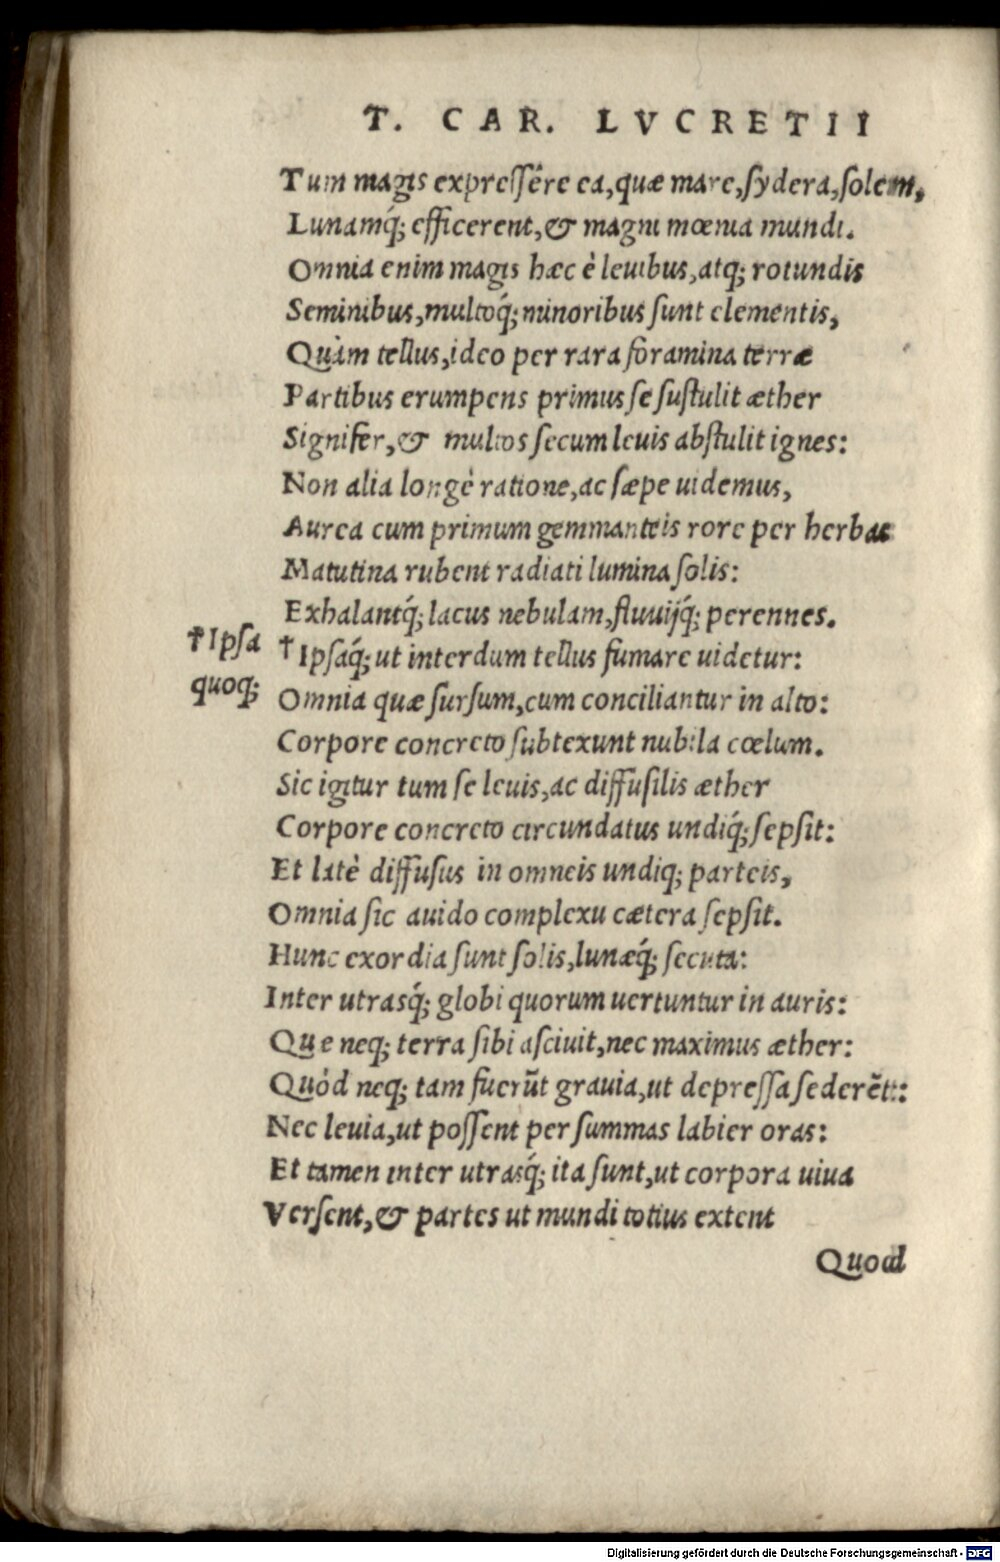 T. CAR. LVCRETII
Tum magis expressêre ea,quæ mare,sydera,solem,
Lunamq́; efficerent,& magni mœnia mundi.
Omnia enim magis hæc è leuibus,atq; rotundis
Seminibus,multoq́; minoribus sunt elementis,
Quàm tellus,ideo per rara foramina terræ
Partibus erumpens primus se sustulit æther
Signifer,& multos secum leuis abstulit ignes:
Non alia longè ratione,ac sæpe uidemus,
Aurea cum primum gemmanteis rore per herbas
Matutina rubent radiati lumina solis:
Exhalantq́; lacus nebulam,fluuijq́; perennes.
†Ipsa
quoq;
†Ipsaq́; ut interdum tellus fumare uidetur:
Omnia quæ sursum,cum conciliantur in alto:
Corpore concreto subtexunt nubila cœlum.
Sic igitur tum se leuis,ac diffusilis æther
Corpore concreto circundatus undiq́; sepsit:
Et latè diffusus in omneis undiq; parteis,
Omnia sic auido complexu cætera sepsit.
Hunc exordia sunt solis,lunæq́; secuta:
Inter utrasq́; globi quorum uertuntur in auris:
Que neq; terra sibi asciuit,nec maximus æther:
Quòd neq; tam fuerũt grauia,ut depressa sederẽt::
Nec leuia,ut possent per summas labier oras:
Et tamen inter utrasq́; ita sunt,ut corpora uiua
Versent,& partes ut mundi totius extent
Quod
Digitalisierung gefördert durch die Deutsche Forschungsgemeinschaft - DFG